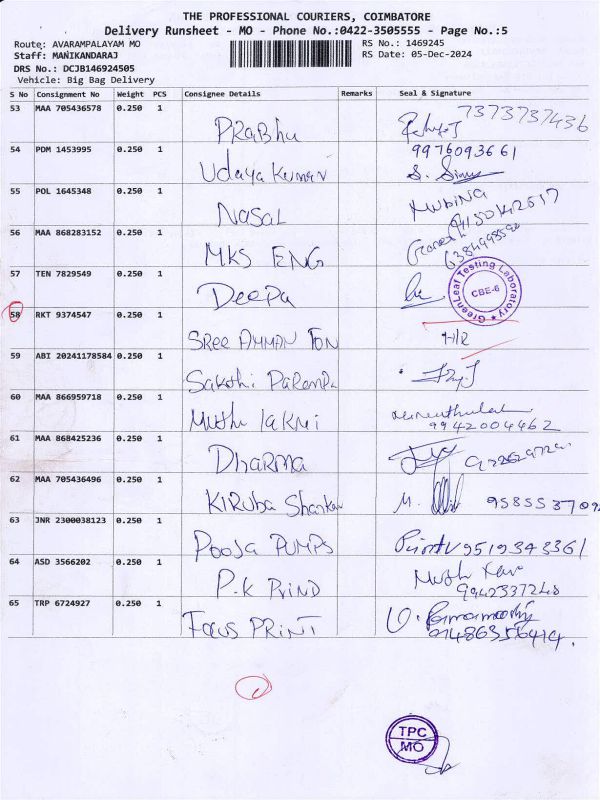 THE PROFESSIONAL COURIERS, COIMBATORE
Delivery Runsheet - MO - Phone No.:0422-3505555 - Page No.:5
Route: AVARAMPALAYAM MO
RS No.: 1469245
Staff: MANIKANDARAJ
RS Date: 05-Dec-2024
DRS No.: DCJB146924505
Vehicle: Big Bag Delivery
S No Consignment No Weight PCS Consignee Details Remarks Seal & Signature
53 MAA 705436578 0.250 1 PRabhu 7373737436
54 PDM 1453995 0.250 1 Udaya Kumar 9976093661
55 POL 1645348 0.250 1 NASAL MUBINA
56 MAA 868283152 0.250 1 MKS ENG
57 TEN 7829549 0.250 1 Deepa
GreenLeaf Testing Laboratory
CBE-6
58 RKT 9374547 0.250 1 SRee AMMAN TON
59 ABI 20241178584 0.250 1 Sakthi
60 MAA 866959718 0.250 1 Muthu lakmi
9942004462
61 MAA 868425236 0.250 1 Dharma
62 MAA 705436496 0.250 1 KIRUba Shankar M.
63 JNR 2300038123 0.250 1 POOJA PUMPS 9519343361
64 ASD 3566202 0.250 1 P.K PRIND
9942337248
65 TRP 6724927 0.250 1 FOCUS PRINT
TPC
MO